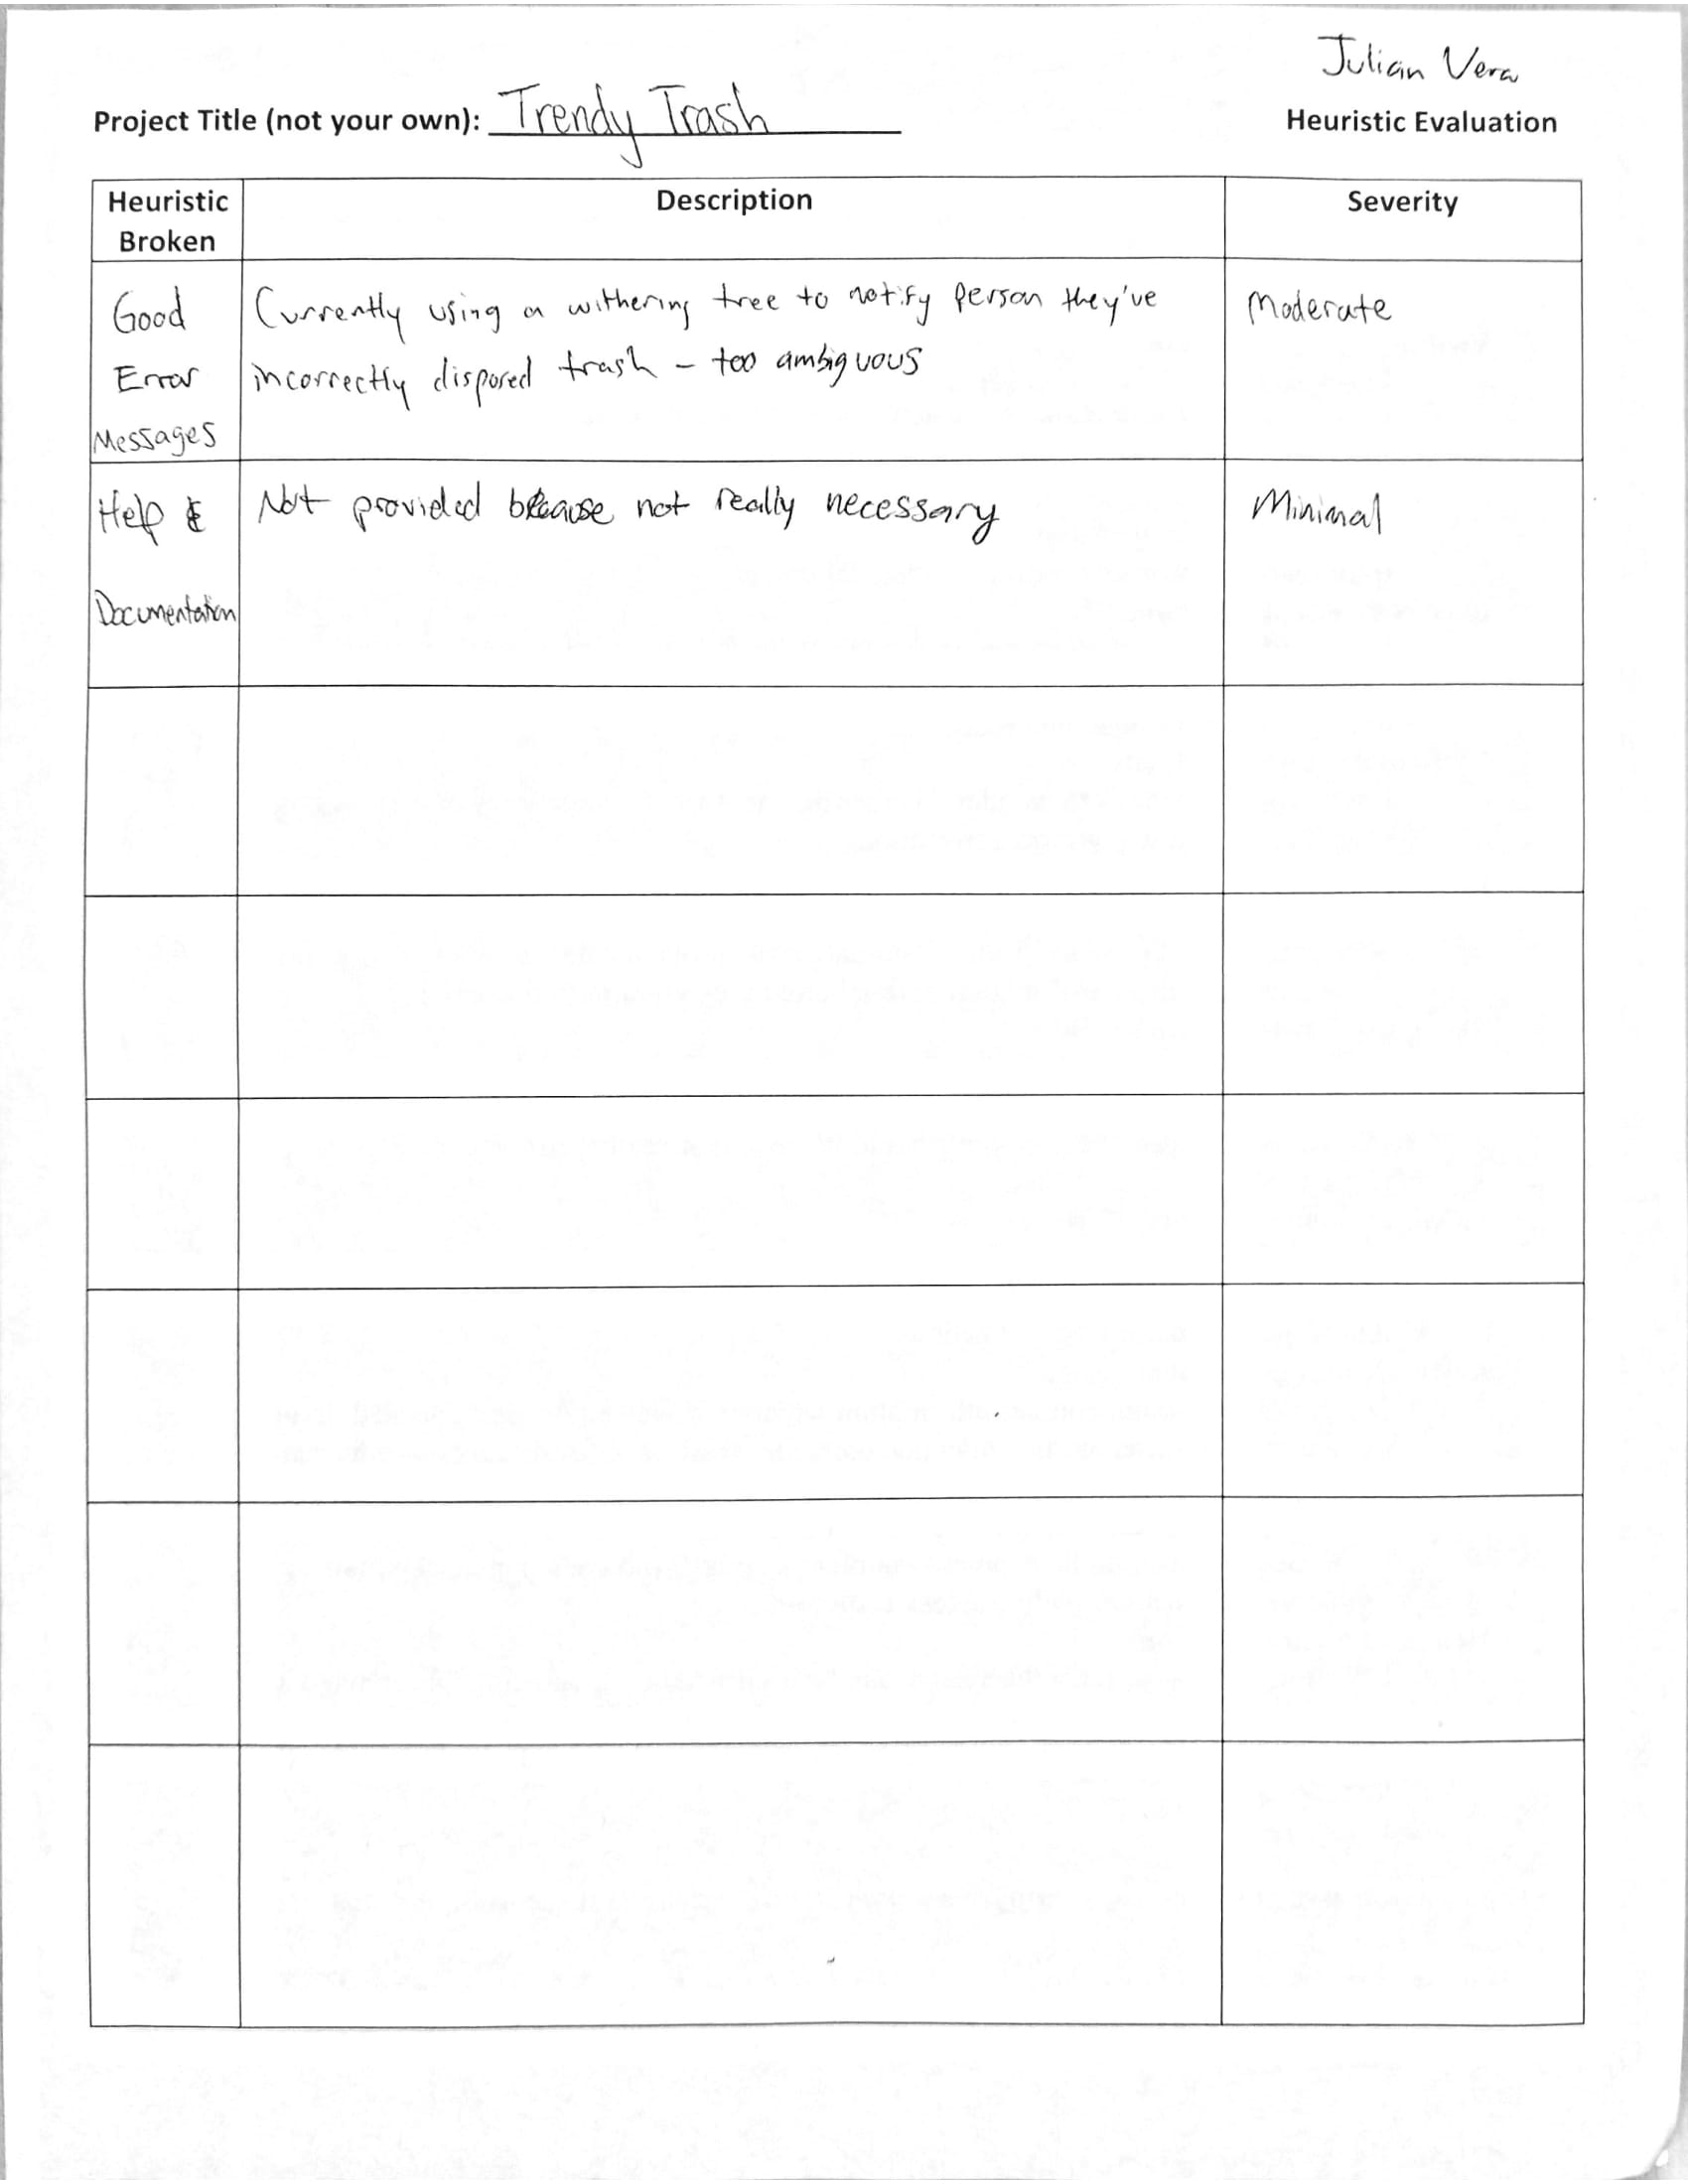 Julian Vera
Project Title (not your own): Trendy Trash
Heuristic Evaluation
Heuristic Broken
Description
Severity
Good
Error
Messages
Currently using a withering tree to notify person they've
incorrectly disposed trash - too ambiguous
Moderate
Help &
Documentation
Not provided because not really necessary
Minimal